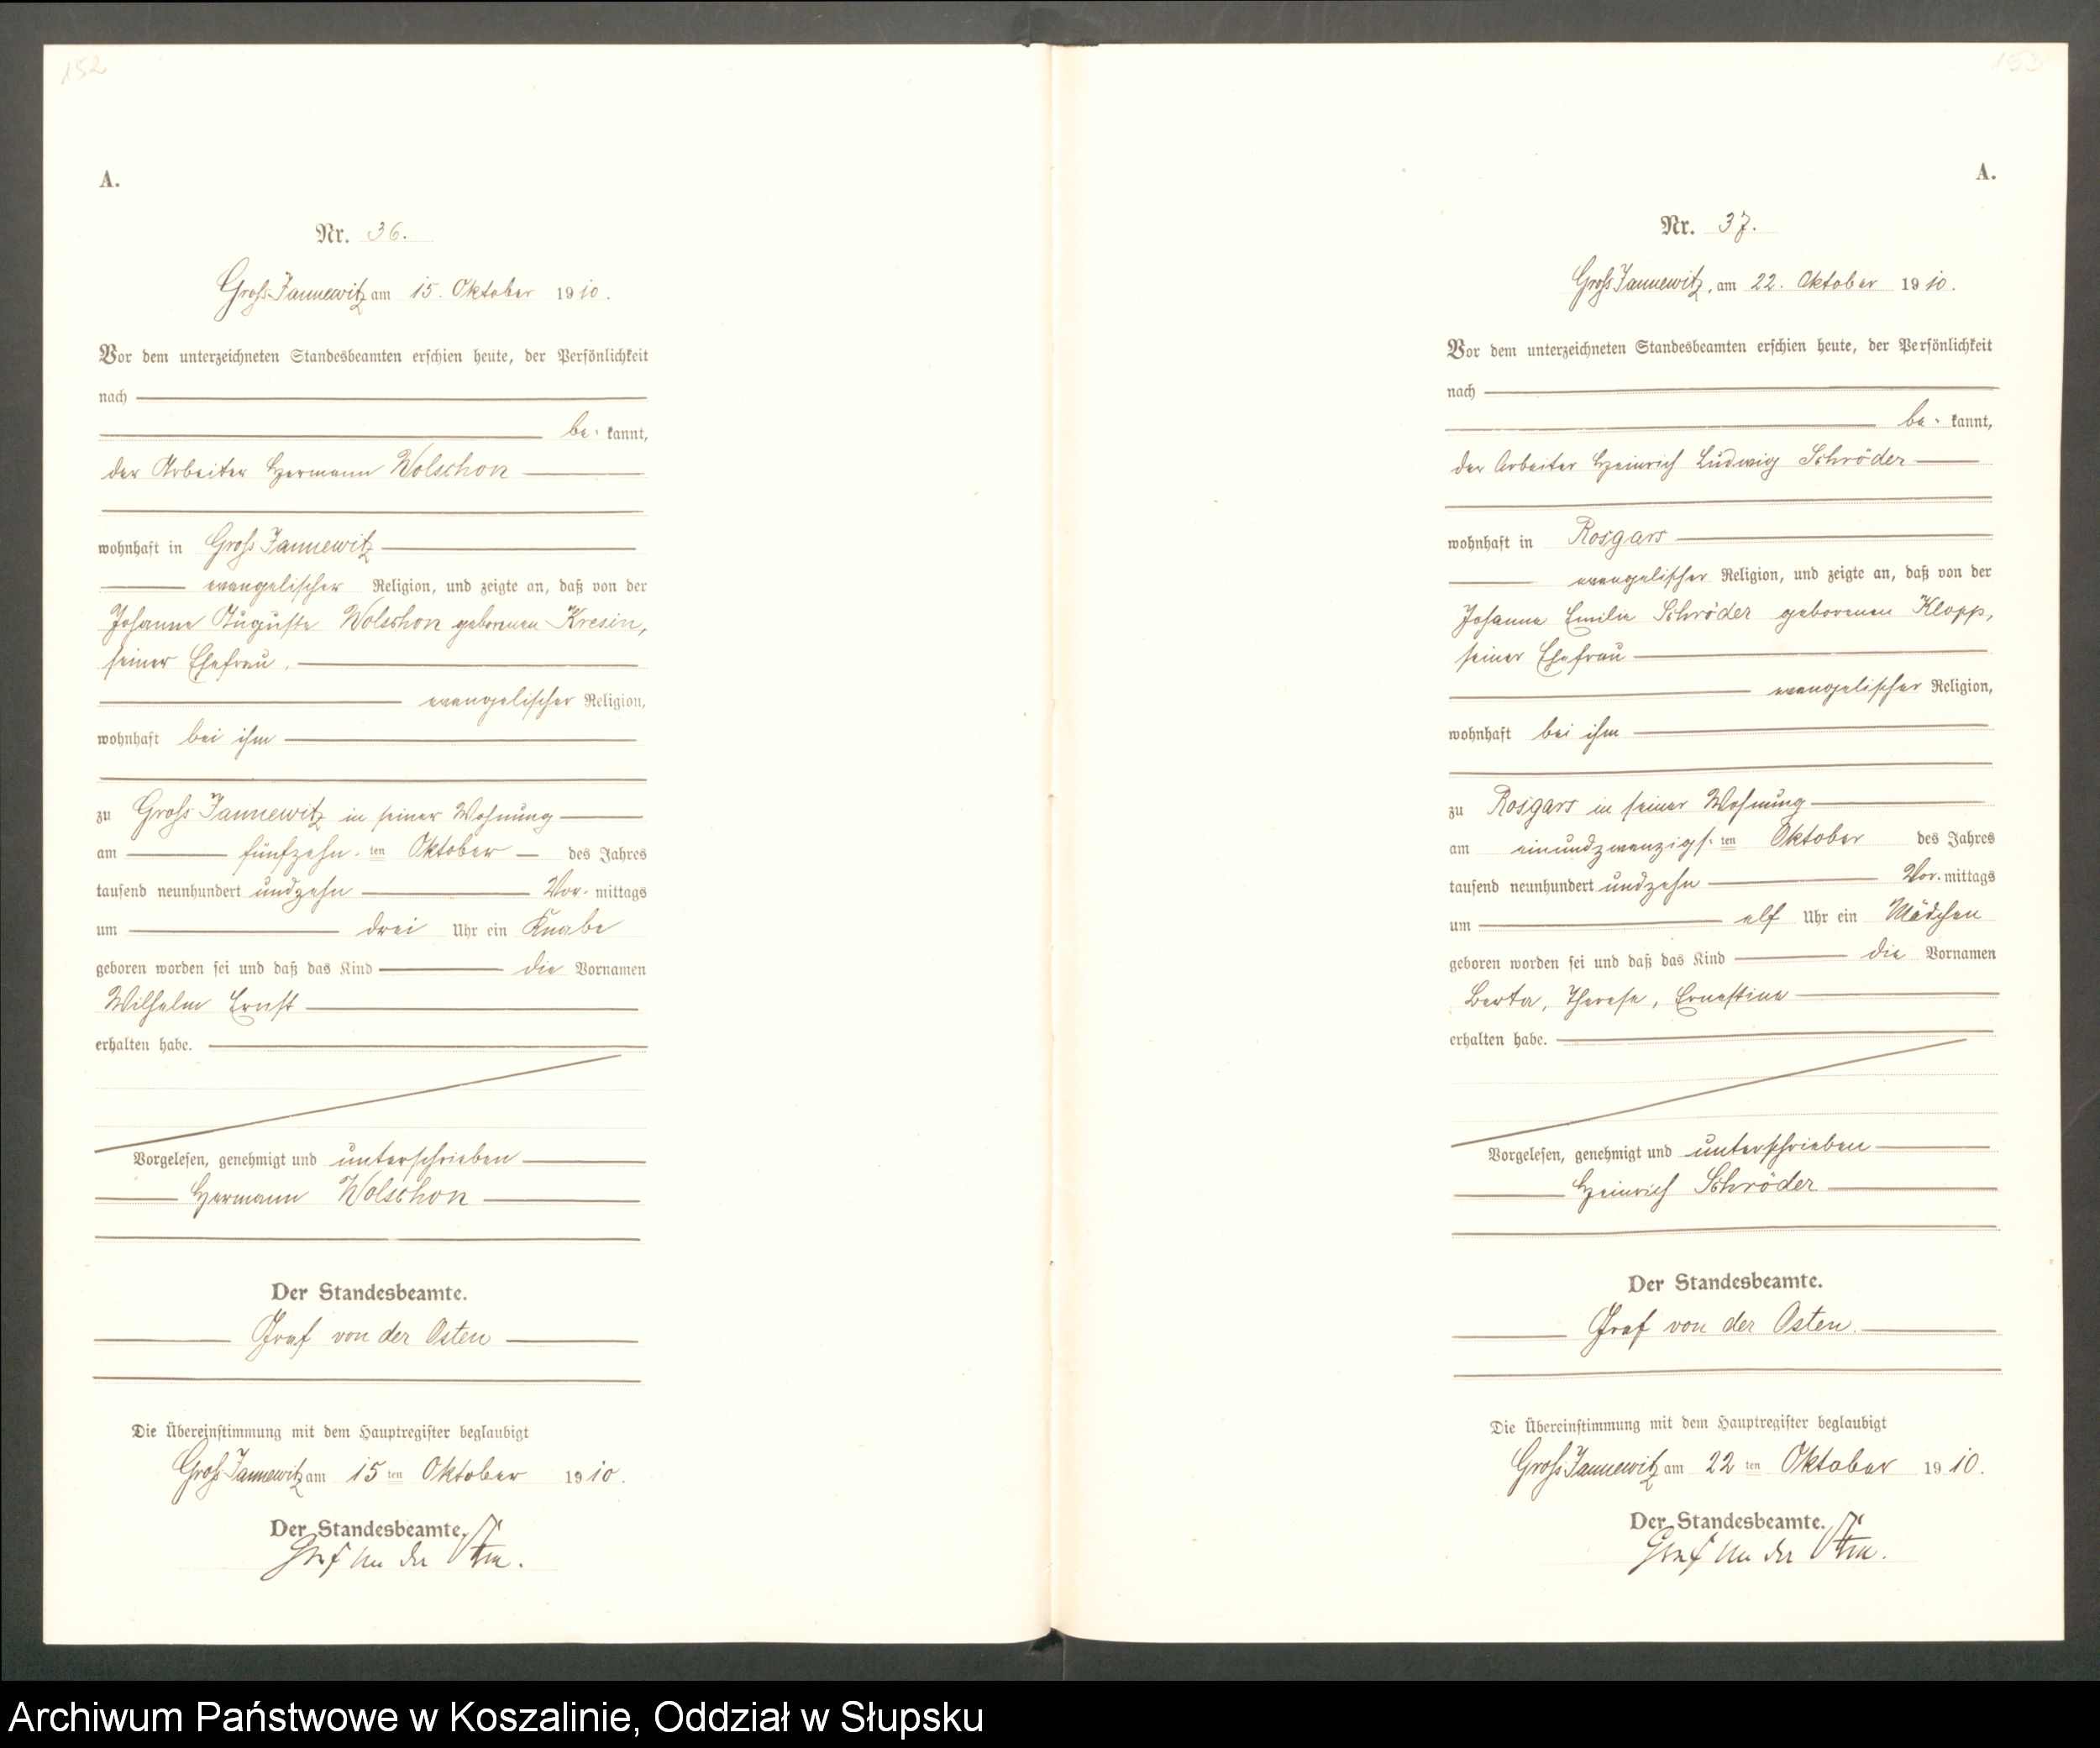 152
A.
Nr. 36.
Groß-Jannewitz am 15. Oktober 1910.
Vor dem unterzeichneten Standesbeamten erschien heute, der Persönlichkeit
nach
be- kannt,
der Arbeiter Hermann Wolschon
wohnhaft in Groß Jannewitz
evangelischer Religion, und zeigte an, daß von der
Johanne Auguste Wolschon geborenen Kresin,
seiner Ehefrau,
evangelischer Religion,
wohnhaft bei ihm
zu Groß Jannewitz in seiner Wohnung
am fünfzehn- ten Oktober des Jahres
tausend neunhundert undzehn Vor- mittags
um drei Uhr ein Knabe
geboren worden sei und daß das Kind die Vornamen
Wilhelm Ernst
erhalten habe.
Vorgelesen, genehmigt und unterschrieben
Hermann Wolschon
Der Standesbeamte.
Graf von der Osten
Die Übereinstimmung mit dem Hauptregister beglaubigt
Groß-Jannewitz am 15 ten Oktober 1910.
Der Standesbeamte.
Graf von der Osten.
153
A.
Nr. 37.
Groß Jannewitz, am 22. Oktober 1910.
Vor dem unterzeichneten Standesbeamten erschien heute, der Persönlichkeit
nach
be- kannt,
der Arbeiter Heinrich Ludwig Schröder
wohnhaft in Rosgars
evangelischer Religion, und zeigte an, daß von der
Johanna Emilie Schröder geborenen Klopp,
seiner Ehefrau
evangelischer Religion,
wohnhaft bei ihm
zu Rosgars in seiner Wohnung
am einundzwanzigs- ten Oktober des Jahres
tausend neunhundert undzehn Vor- mittags
um elf Uhr ein Mädchen
geboren worden sei und daß das Kind die Vornamen
Berta, Therese, Ernestine
erhalten habe.
Vorgelesen, genehmigt und unterschrieben
Heinrich Schröder
Der Standesbeamte.
Graf von der Osten.
Die Übereinstimmung mit dem Hauptregister beglaubigt
Groß Jannewitz am 22 ten Oktober 1910.
Der Standesbeamte.
Graf von der Osten.
Archiwum Państwowe w Koszalinie, Oddział w Słupsku